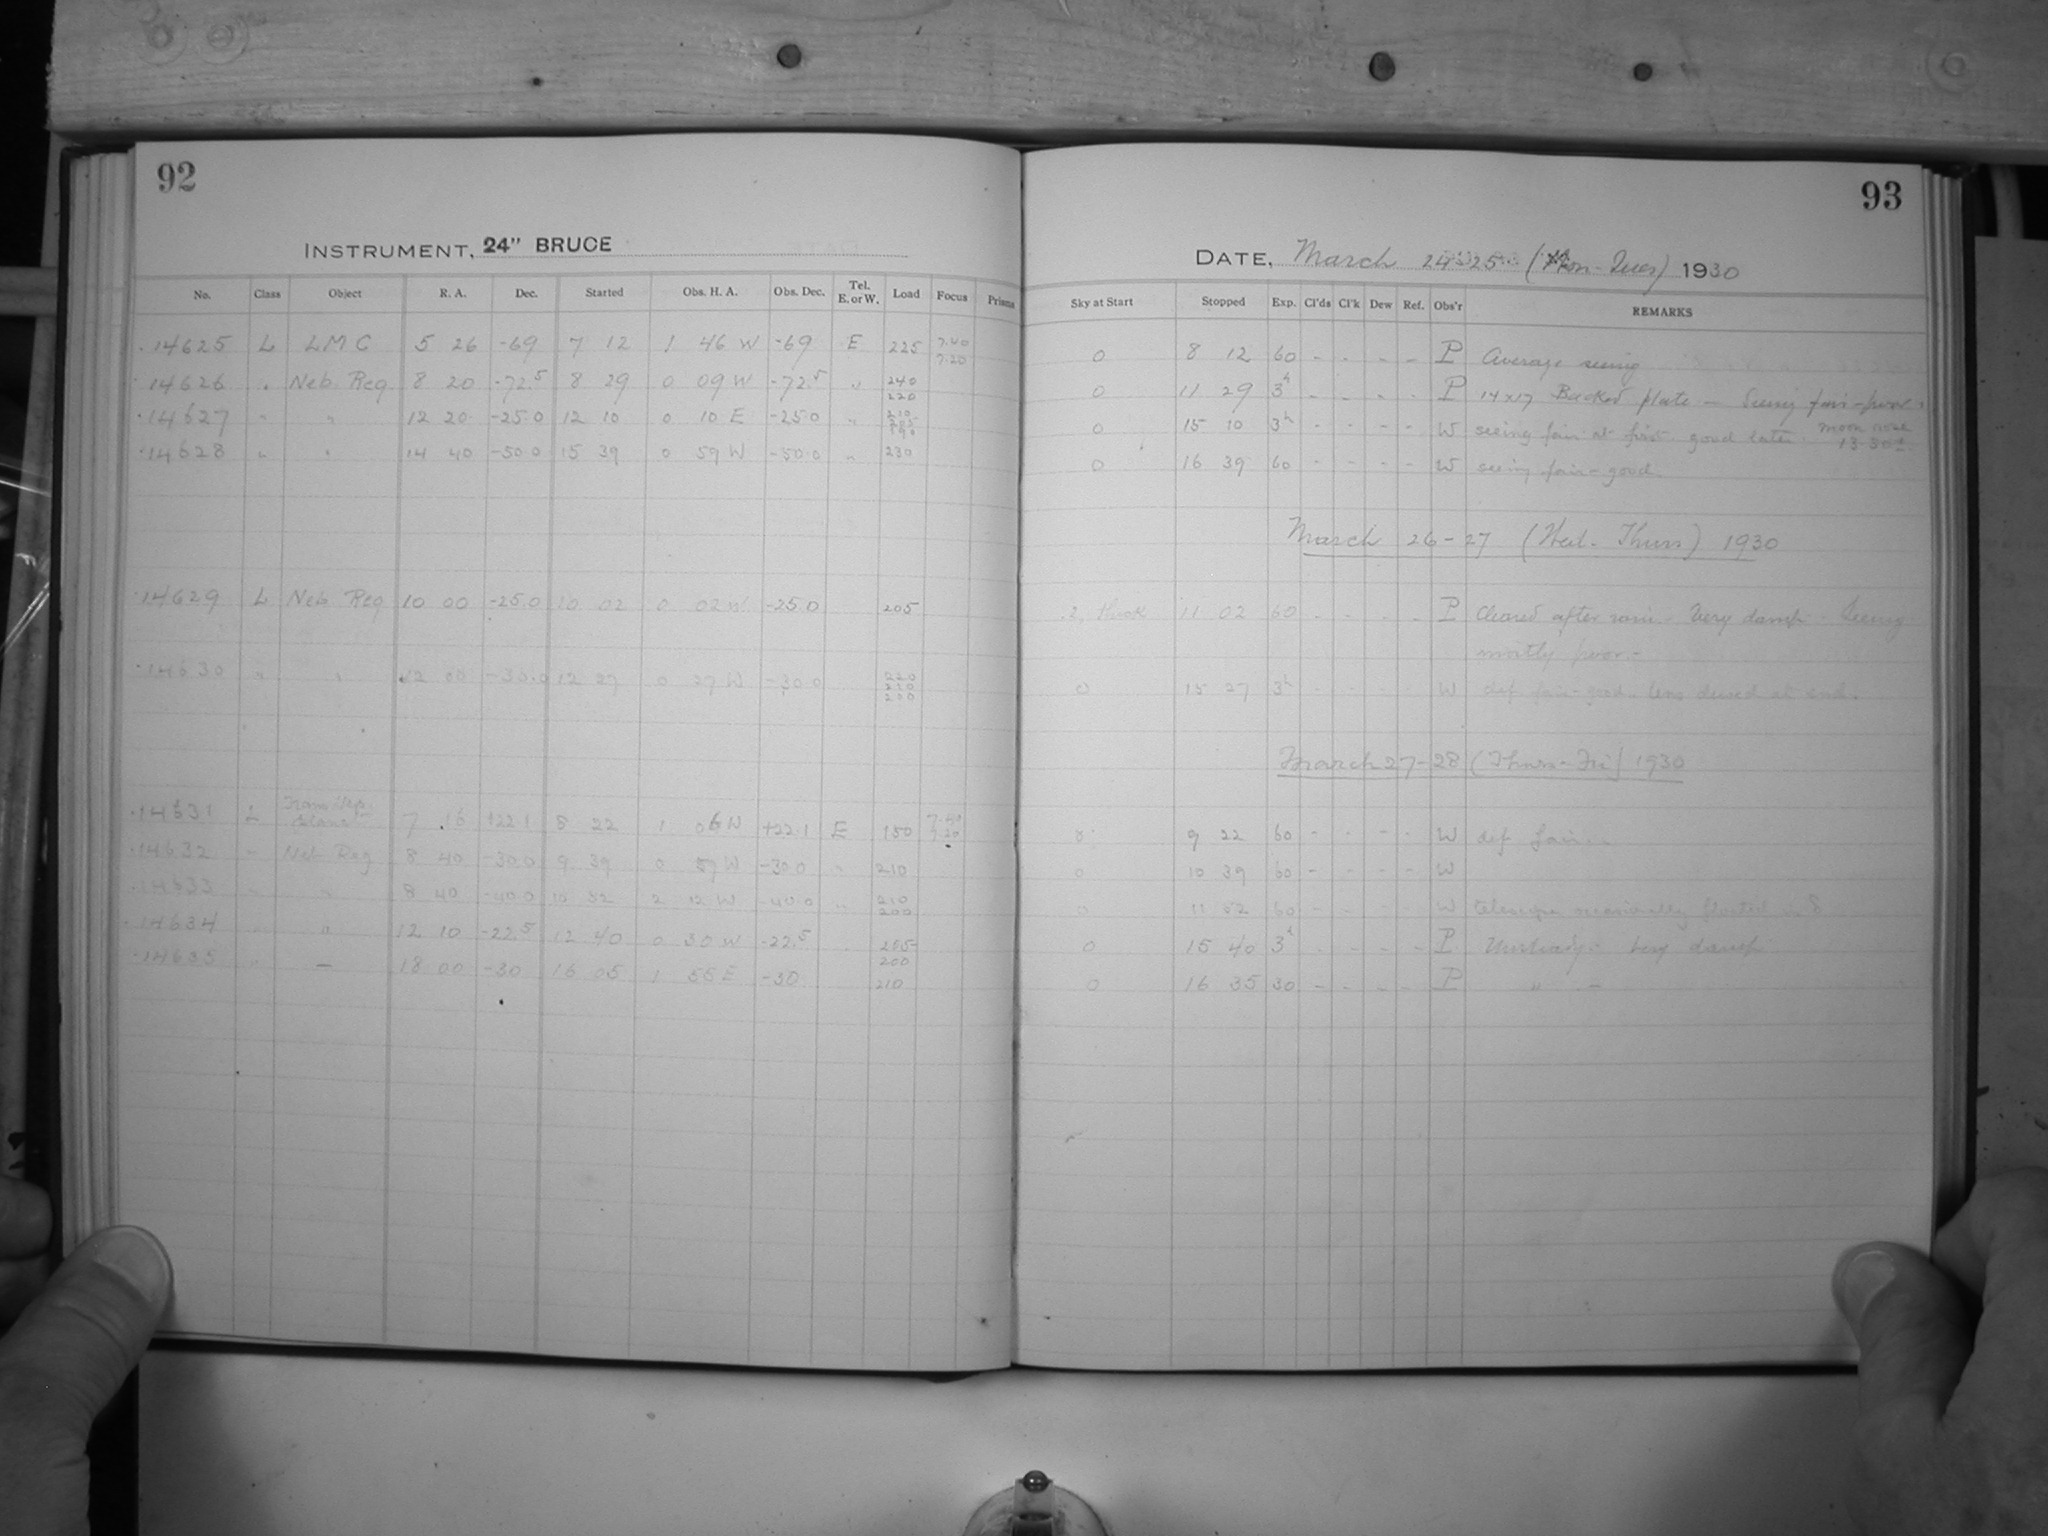 92
INSTRUMENT, 24" BRUCE
No. Class Object R. A. Dec. Started Obs. H. A. Obs. Dec. Tel. E. or W. Load Focus Prisms
14625 L LMC 5 26 -69 7 12 1 46 W -69 E 225 7.40 7.20
14626 " Neb. Reg 8 20 -72.5 8 29 0 09 W -72.5 " 240 220
14627 " " 12 20 -25.0 12 10 0 10 E -25.0 " 210 205 190
14628 " " 14 40 -50.0 15 39 0 59 W -50.0 " 230
14629 L Neb Reg 10 00 -25.0 10 02 0 02 W -25.0 205
14630 " " 12 00 -30.0 12 27 0 27 W -30.0 220 210 200
14631 L Trans Nep. Planet 7 16 +22.1 8 22 1 06 W +22.1 E 150 7.40 7.20
14632 " Neb Reg 8 40 -30.0 9 39 0 59 W -30.0 " 210
14633 " " 8 40 -40.0 10 52 2 12 W -40.0 " 210 200
14634 " " 12 10 -22.5 12 40 0 30 W -22.5 205 200
14635 " — 18 00 -30 16 05 1 55 E -30 210
93
DATE, March 24-25 (Mon-Tues) 1930
Sky at Start Stopped Exp. Cl'ds Cl'k Dew Ref. Obs'r REMARKS
0 8 12 60 - - - - P Average seeing
0 11 29 3h - - - - P 14x17 Backed plate - Seeing fair-poor.
0 15 10 3h - - - - W seeing fair at first good later. moon rose 13 50±
0 16 39 60 - - - - W seeing fair-good
March 26-27 (Wed.-Thurs) 1930
2, thick 11 02 60 - - - - P Cleared after rain. Very damp - Seeing
mostly poor.-
0 15 27 3h - - - - W def fair-good. Lens dewed at end.
March 27-28 (Thurs-Fri) 1930
9 22 60 - - - - W def fair
0 10 39 60 - - - - W
0 11 52 60 - - - - W telescope occasionally floated in δ
0 15 40 3h - - - - P Unsteady - Very damp
0 16 35 30 - - - - P " -